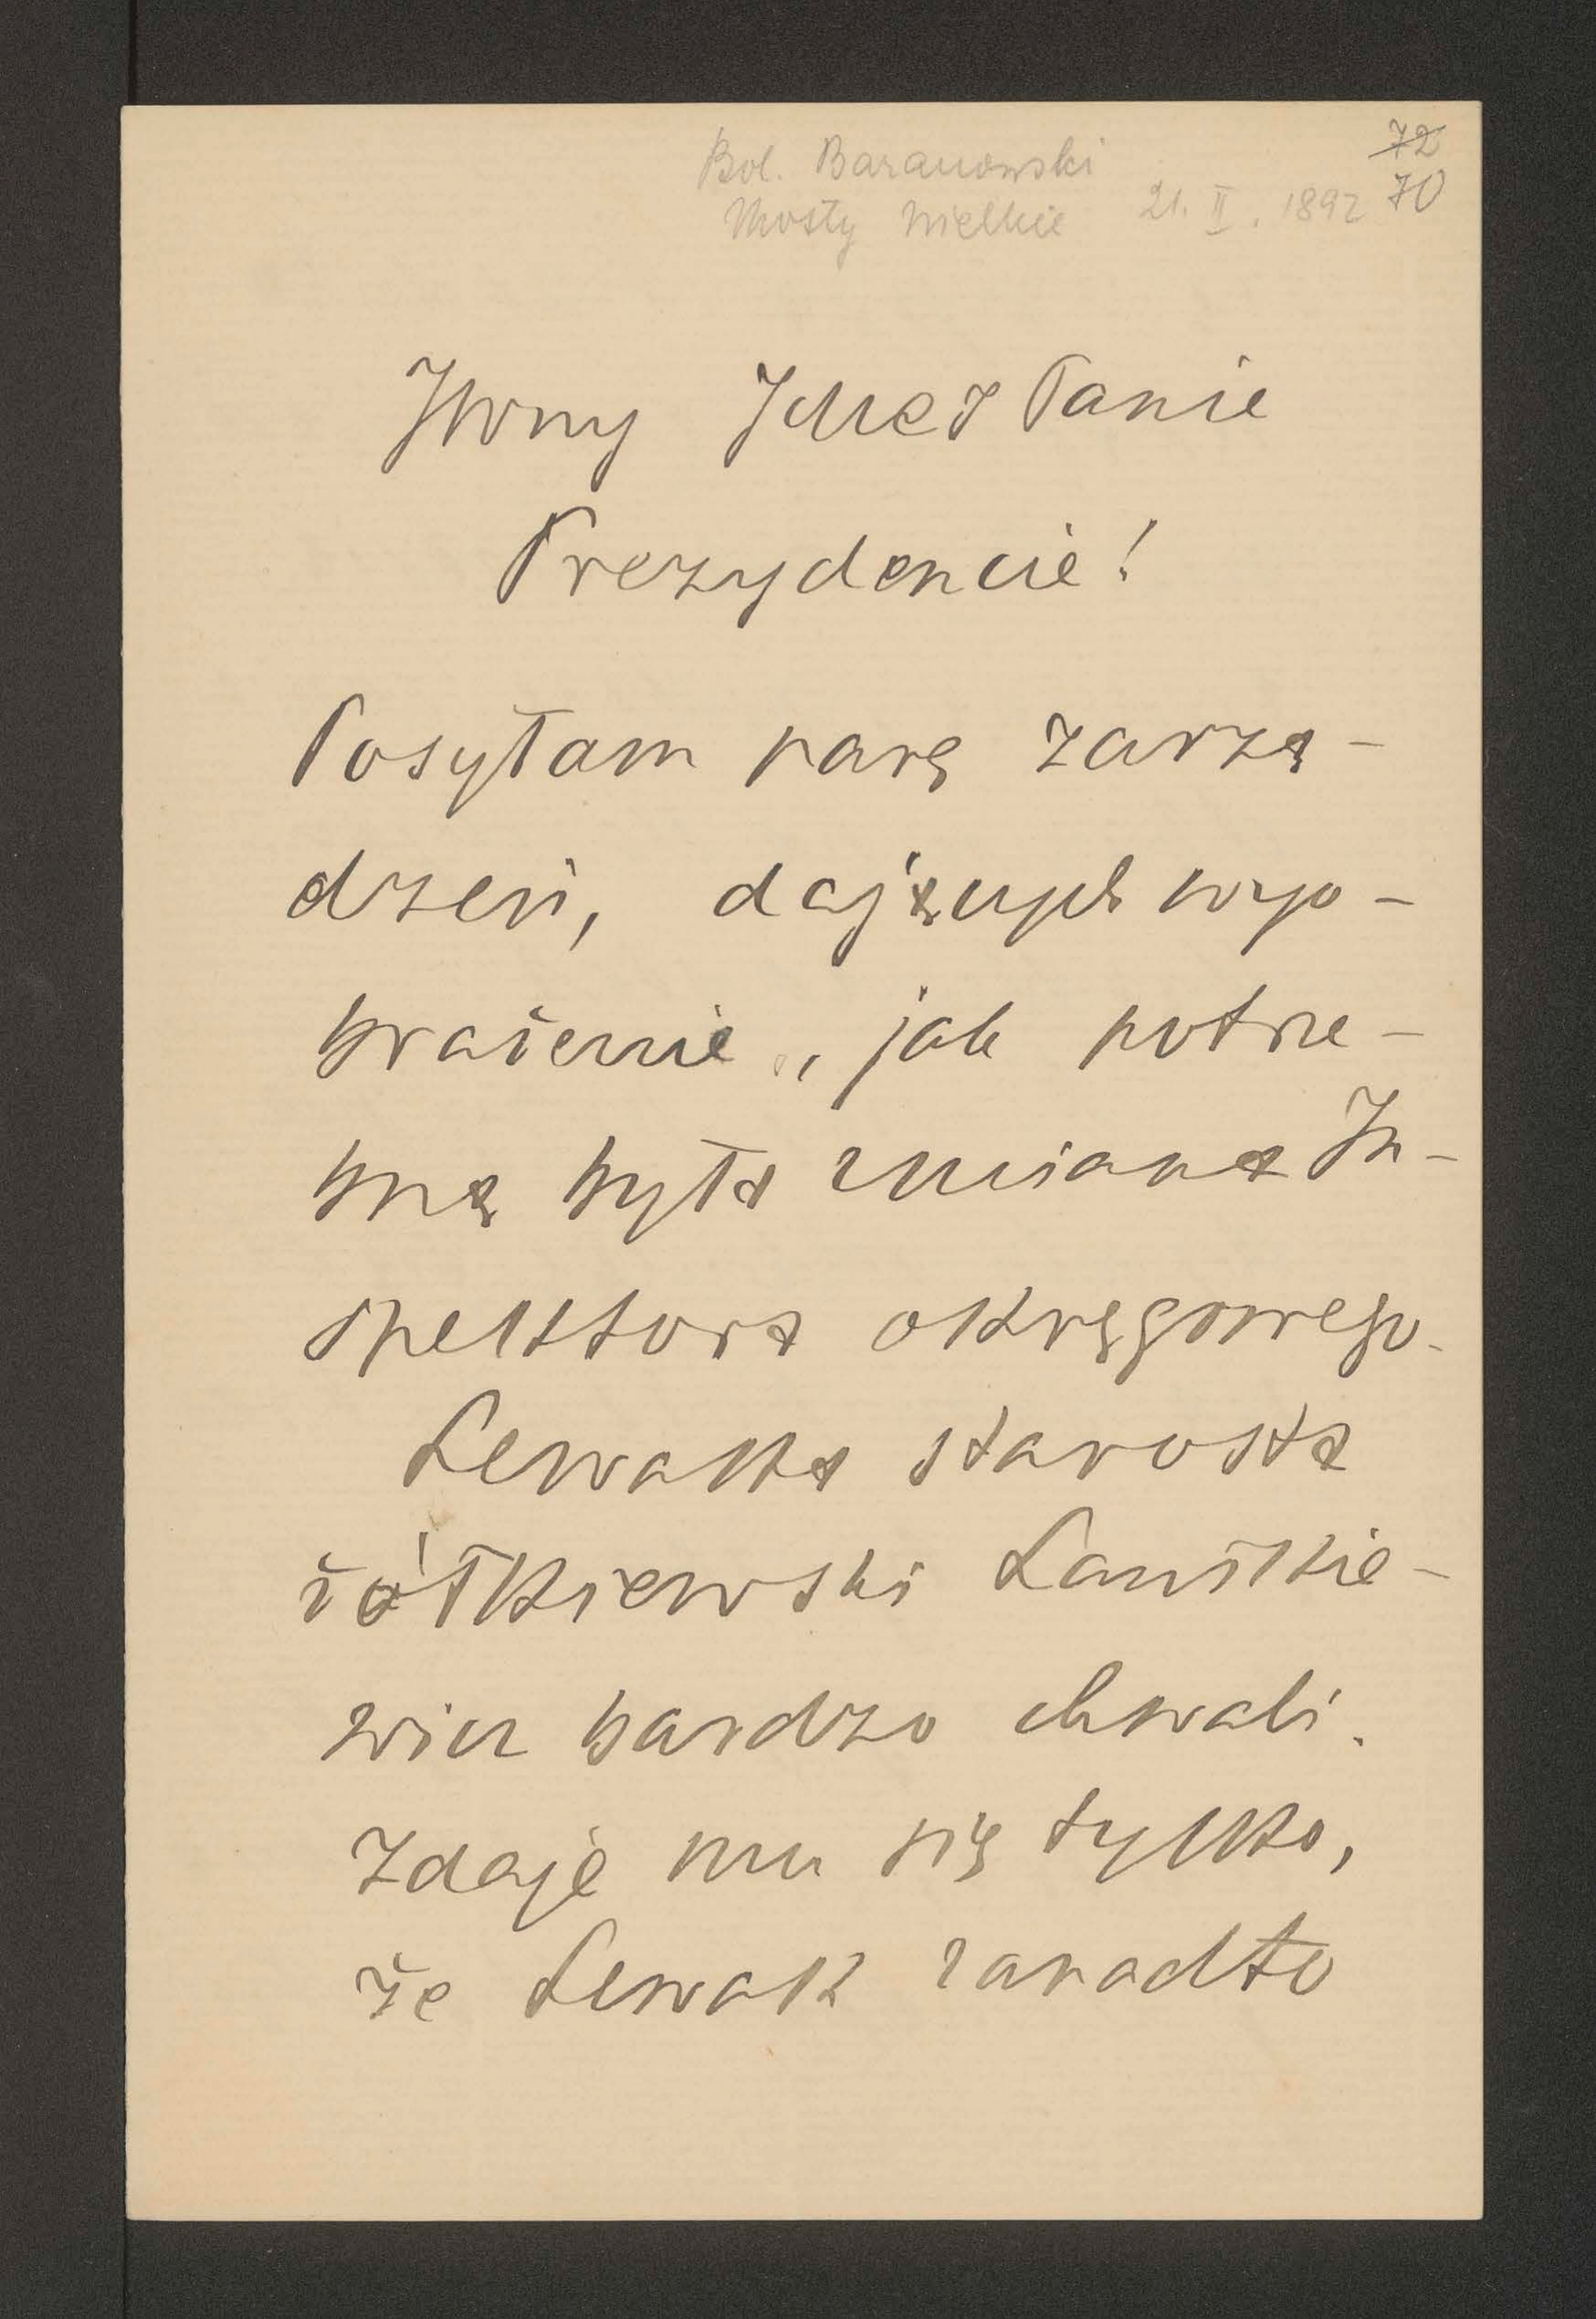 Bol. Baranowski
Mosty Wielkie 21. II. 1892
72
70
JWny JMć Panie
Prezydencie!
Posyłam parę zarzą-
dzeń, dających wyo-
brażenie, jak potrze-
bną była zmiana In-
spektora okręgowego.
Lewaka starosta
żółkiewski Lanikie-
wicz bardzo chwali.
Zdaje mu się tylko,
że Lewak zanadto